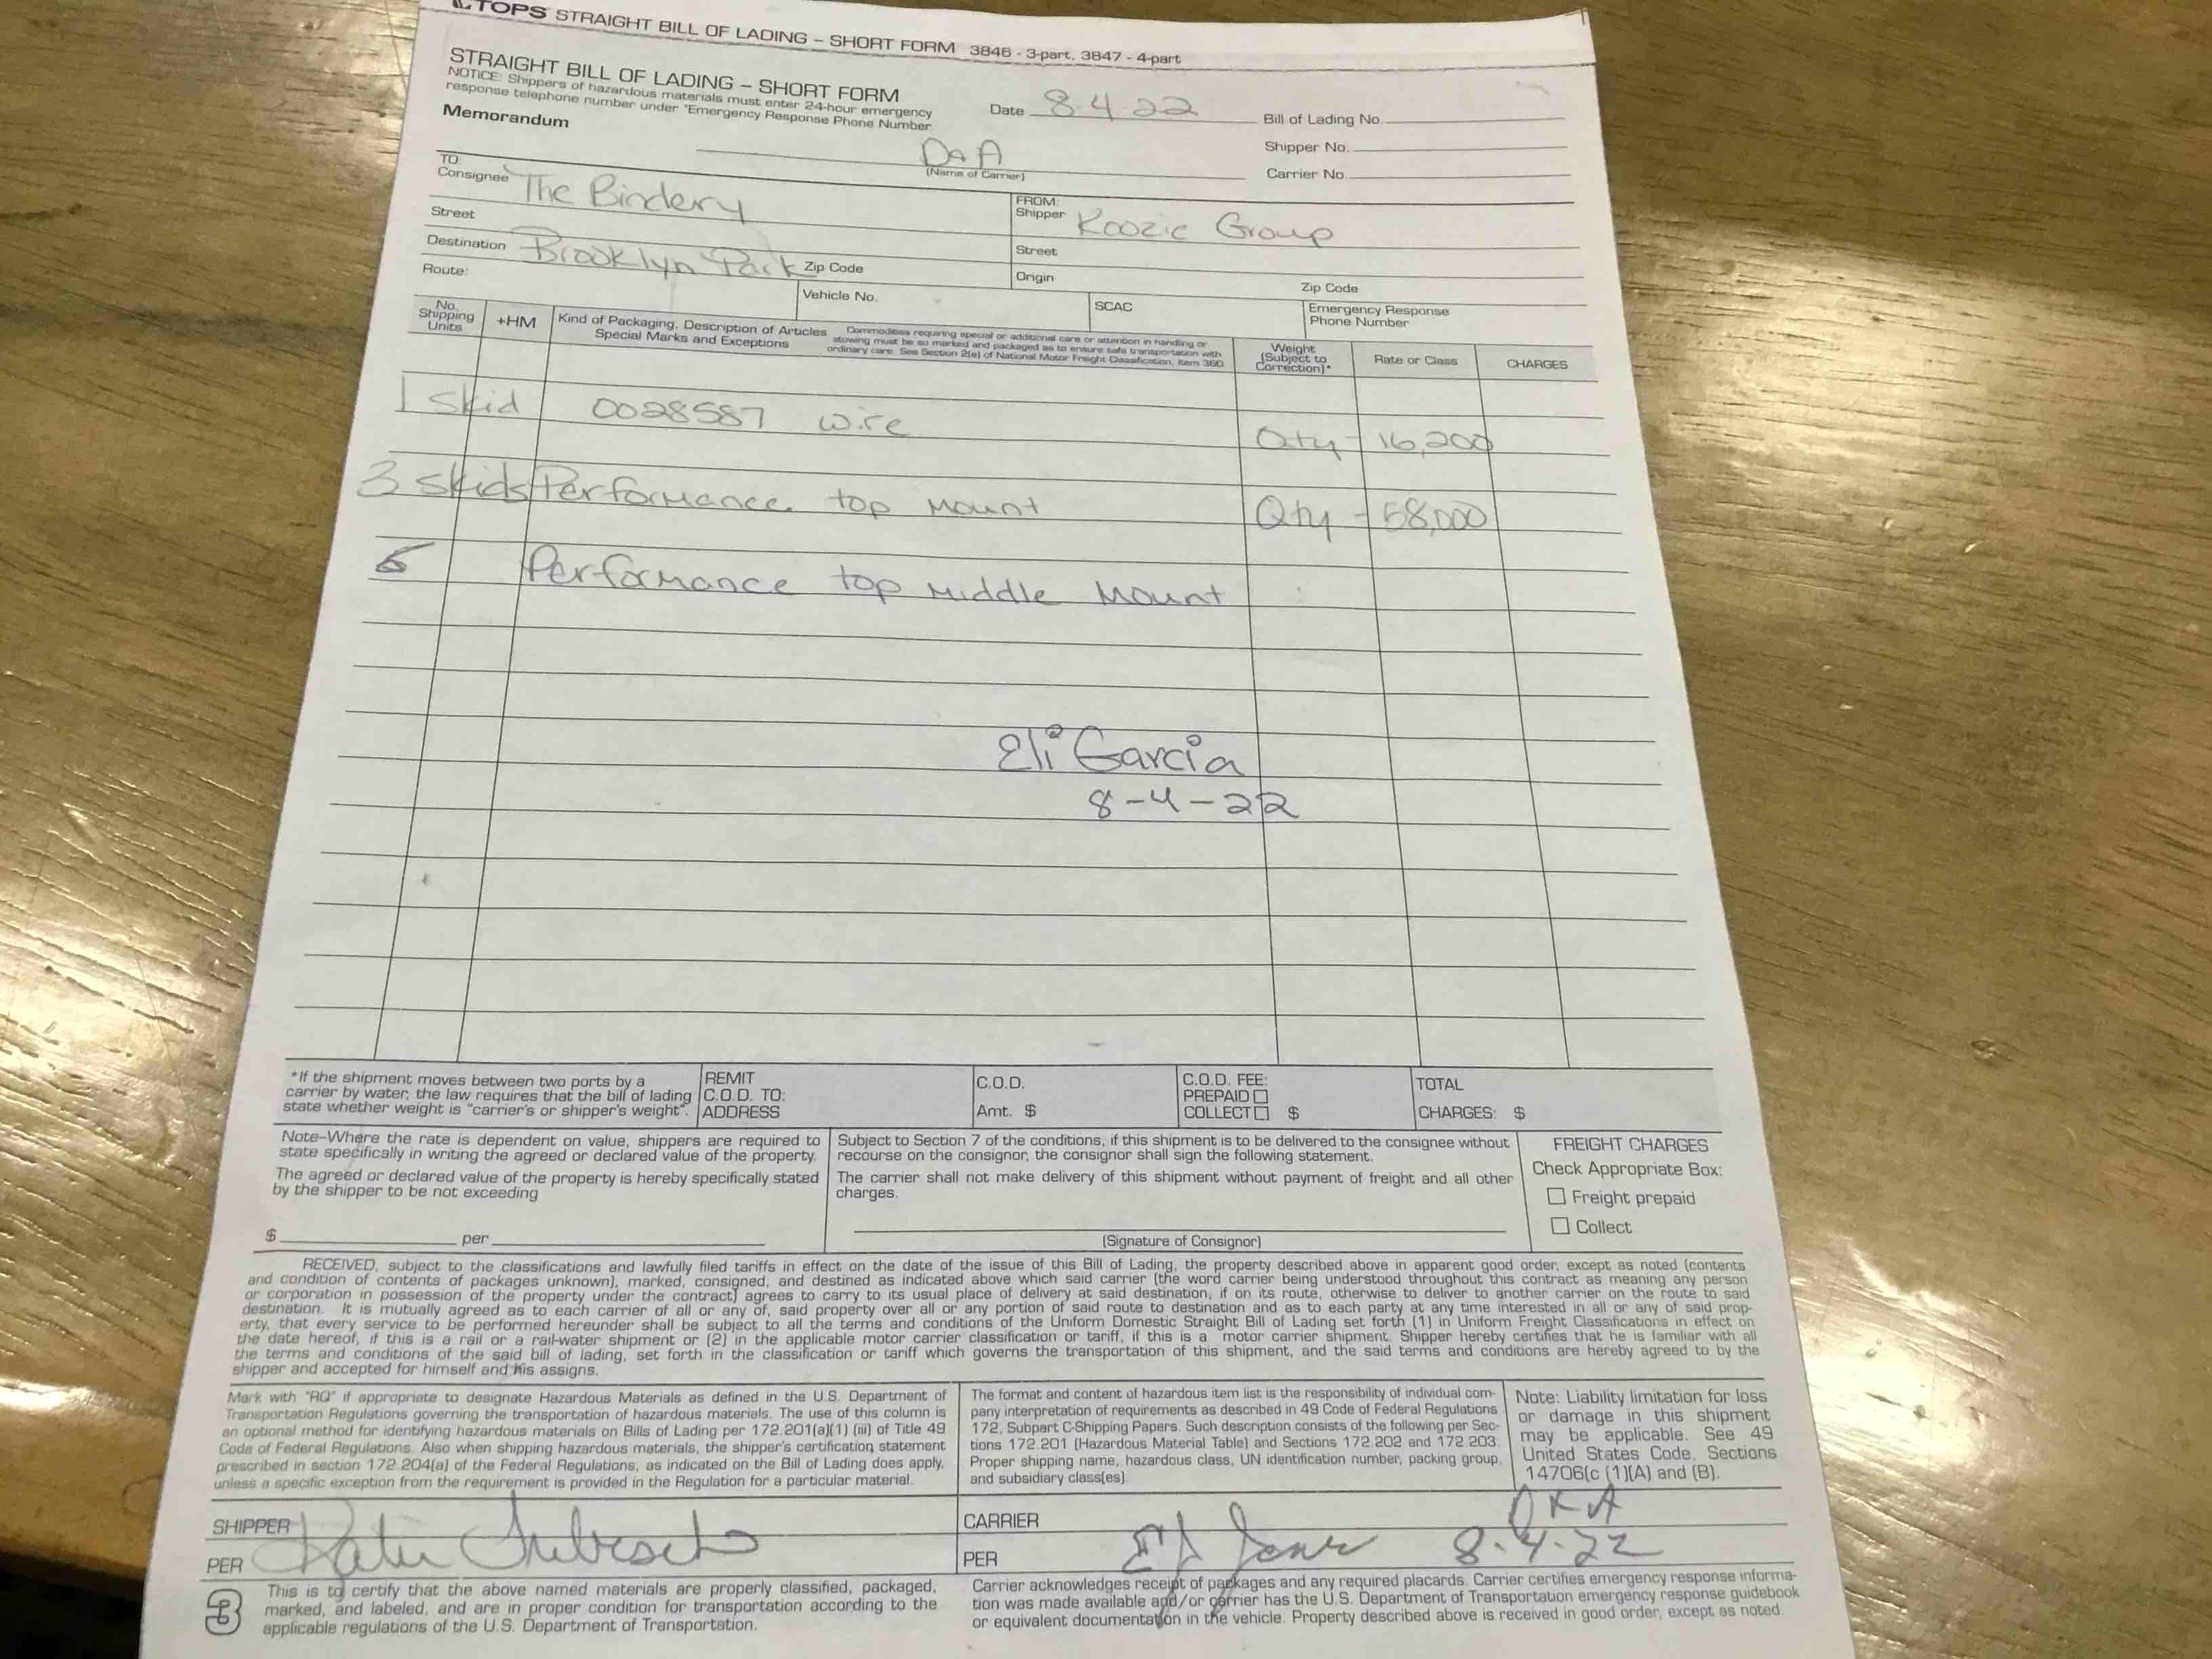 TOPS STRAIGHT BILL OF LADING – SHORT FORM 3846 - 3-part, 3847 - 4-part
STRAIGHT BILL OF LADING – SHORT FORM
NOTICE: Shippers of hazardous materials must enter 24-hour emergency
response telephone number under "Emergency Response Phone Number.
Memorandum
Date 8-4-22
Bill of Lading No.
Shipper No.
Carrier No.
D&A
(Name of Carrier)
TO:
Consignee The Bindery
Street
Destination Brooklyn Park Zip Code
Route:
FROM:
Shipper Koozie Group
Street
Origin
Zip Code
Vehicle No.
SCAC
Emergency Response
Phone Number
No.
Shipping
Units
+HM
Kind of Packaging, Description of Articles
Special Marks and Exceptions
Commodities requiring special or additional care or attention in handling or
stowing must be so marked and packaged as to ensure safe transportation with
ordinary care. See Section 2(e) of National Motor Freight Classification, Item 360
Weight
(Subject to
Correction)*
Rate or Class
CHARGES
1 Skid 0028587 wire Qty - 16,200
3 Skids Performance top Mount Qty - 58,000
Performance top Middle Mount
Eli Garcia
8-4-22
*If the shipment moves between two ports by a
carrier by water, the law requires that the bill of lading
state whether weight is "carrier's or shipper's weight".
REMIT
C.O.D. TO:
ADDRESS
C.O.D.
Amt. $
C.O.D. FEE:
PREPAID
COLLECT $
TOTAL
CHARGES: $
Note–Where the rate is dependent on value, shippers are required to
state specifically in writing the agreed or declared value of the property.
The agreed or declared value of the property is hereby specifically stated
by the shipper to be not exceeding
$ per
Subject to Section 7 of the conditions, if this shipment is to be delivered to the consignee without
recourse on the consignor, the consignor shall sign the following statement.
The carrier shall not make delivery of this shipment without payment of freight and all other
charges.
(Signature of Consignor)
FREIGHT CHARGES
Check Appropriate Box:
Freight prepaid
Collect
RECEIVED, subject to the classifications and lawfully filed tariffs in effect on the date of the issue of this Bill of Lading, the property described above in apparent good order, except as noted (contents
and condition of contents of packages unknown), marked, consigned, and destined as indicated above which said carrier (the word carrier being understood throughout this contract as meaning any person
or corporation in possession of the property under the contract) agrees to carry to its usual place of delivery at said destination, if on its route, otherwise to deliver to another carrier on the route to said
destination. It is mutually agreed as to each carrier of all or any of, said property over all or any portion of said route to destination and as to each party at any time interested in all or any of said prop-
erty, that every service to be performed hereunder shall be subject to all the terms and conditions of the Uniform Domestic Straight Bill of Lading set forth (1) in Uniform Freight Classifications in effect on
the date hereof, if this is a rail or a rail-water shipment or (2) in the applicable motor carrier classification or tariff, if this is a motor carrier shipment. Shipper hereby certifies that he is familiar with all
the terms and conditions of the said bill of lading, set forth in the classification or tariff which governs the transportation of this shipment, and the said terms and conditions are hereby agreed to by the
shipper and accepted for himself and his assigns.
Mark with "RQ" if appropriate to designate Hazardous Materials as defined in the U.S. Department of
Transportation Regulations governing the transportation of hazardous materials. The use of this column is
an optional method for identifying hazardous materials on Bills of Lading per 172.201(a)(1) (iii) of Title 49
Code of Federal Regulations. Also when shipping hazardous materials, the shipper's certification statement
prescribed in section 172.204(a) of the Federal Regulations, as indicated on the Bill of Lading does apply,
unless a specific exception from the requirement is provided in the Regulation for a particular material.
The format and content of hazardous item list is the responsibility of individual com-
pany interpretation of requirements as described in 49 Code of Federal Regulations
172, Subpart C-Shipping Papers. Such description consists of the following per Sec-
tions 172.201 (Hazardous Material Table) and Sections 172.202 and 172.203:
Proper shipping name, hazardous class, UN identification number, packing group,
and subsidiary class(es).
Note: Liability limitation for loss
or damage in this shipment
may be applicable. See 49
United States Code, Sections
14706(c (1)(A) and (B).
SHIPPER
PER Katie
CARRIER
PER 8-4-22
3
This is to certify that the above named materials are properly classified, packaged,
marked, and labeled, and are in proper condition for transportation according to the
applicable regulations of the U.S. Department of Transportation.
Carrier acknowledges receipt of packages and any required placards. Carrier certifies emergency response informa-
tion was made available and/or carrier has the U.S. Department of Transportation emergency response guidebook
or equivalent documentation in the vehicle. Property described above is received in good order, except as noted.